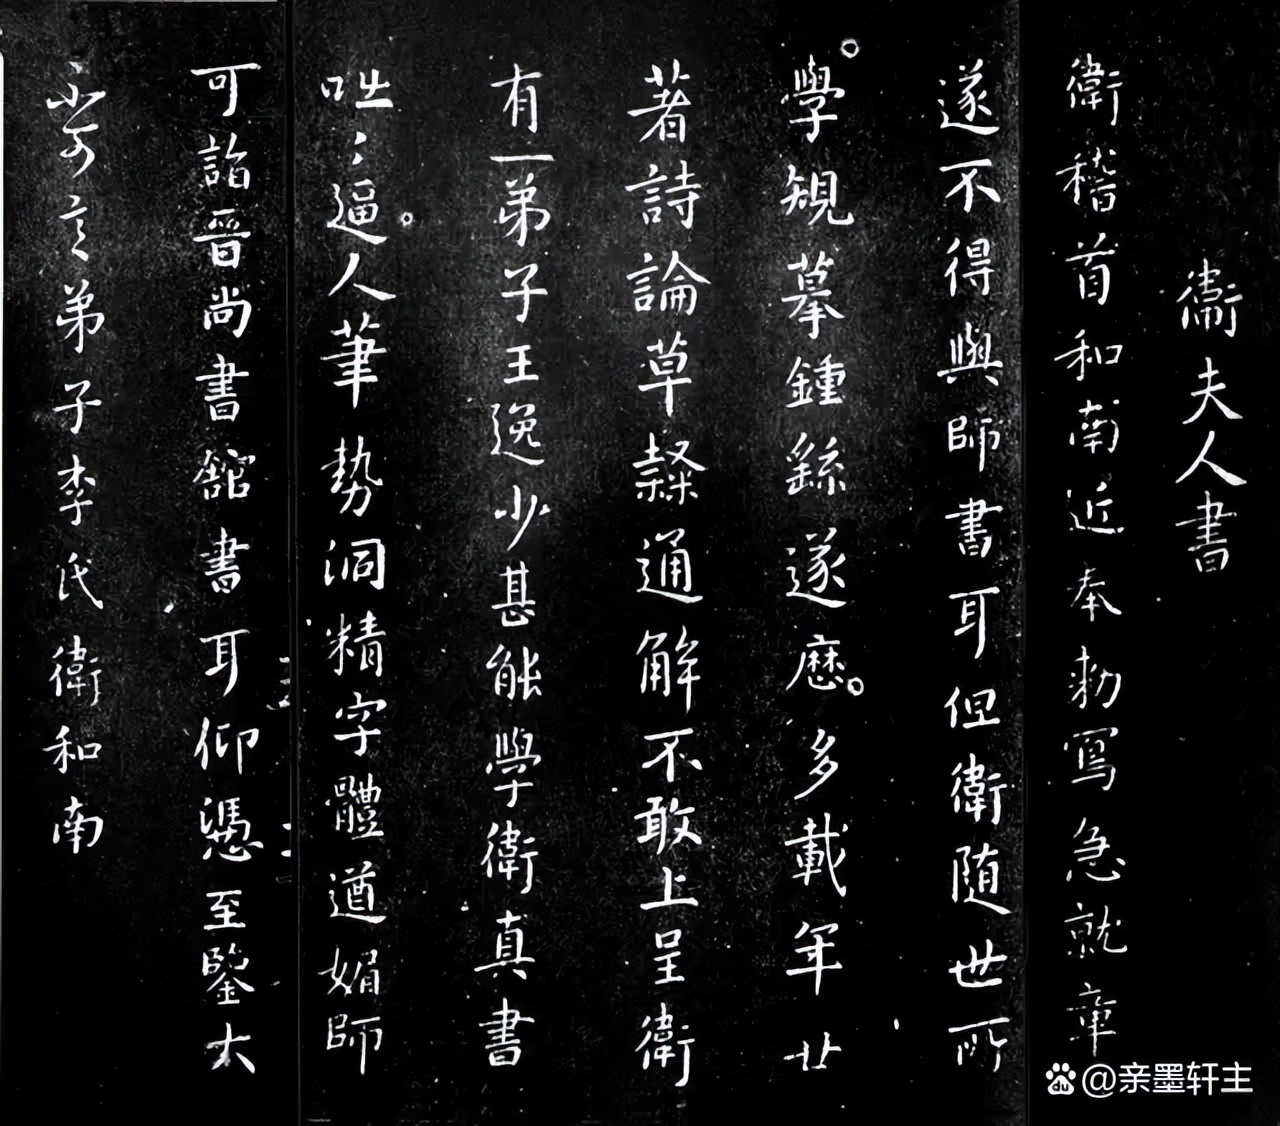 衛夫人書
衛稽首和南近奉勅寫急就章
遂不得與師書耳但衛随世所
學規摹鍾繇遂歷多載年廿
著詩論草隸通解不敢上呈衛
有一弟子王逸少甚能學衛真書
咄〻逼人筆勢洞精字體遒媚師
可詣晉尚書館書耳仰憑至鑒大
不可言弟子李氏衛和南
du @亲墨轩主